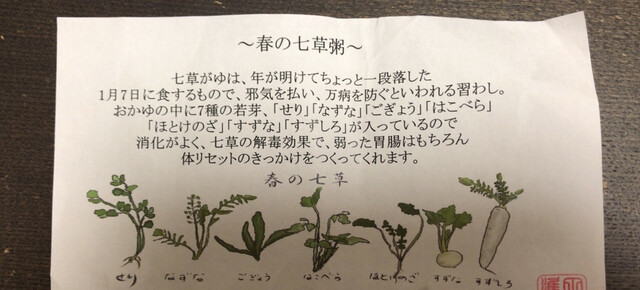 ～春の七草粥～
七草がゆは、年が明けてちょっと一段落した
1月7日に食するもので、邪気を払い、万病を防ぐといわれる習わし。
おかゆの中に7種の若芽、「せり」「なずな」「ごぎょう」「はこべら」
「ほとけのざ」「すずな」「すずしろ」が入っているので
消化がよく、七草の解毒効果で、弱った胃腸はもちろん
体リセットのきっかけをつくってくれます。
春の七草
せり なずな ごぎょう はこべら ほとけのざ すずな すずしろ